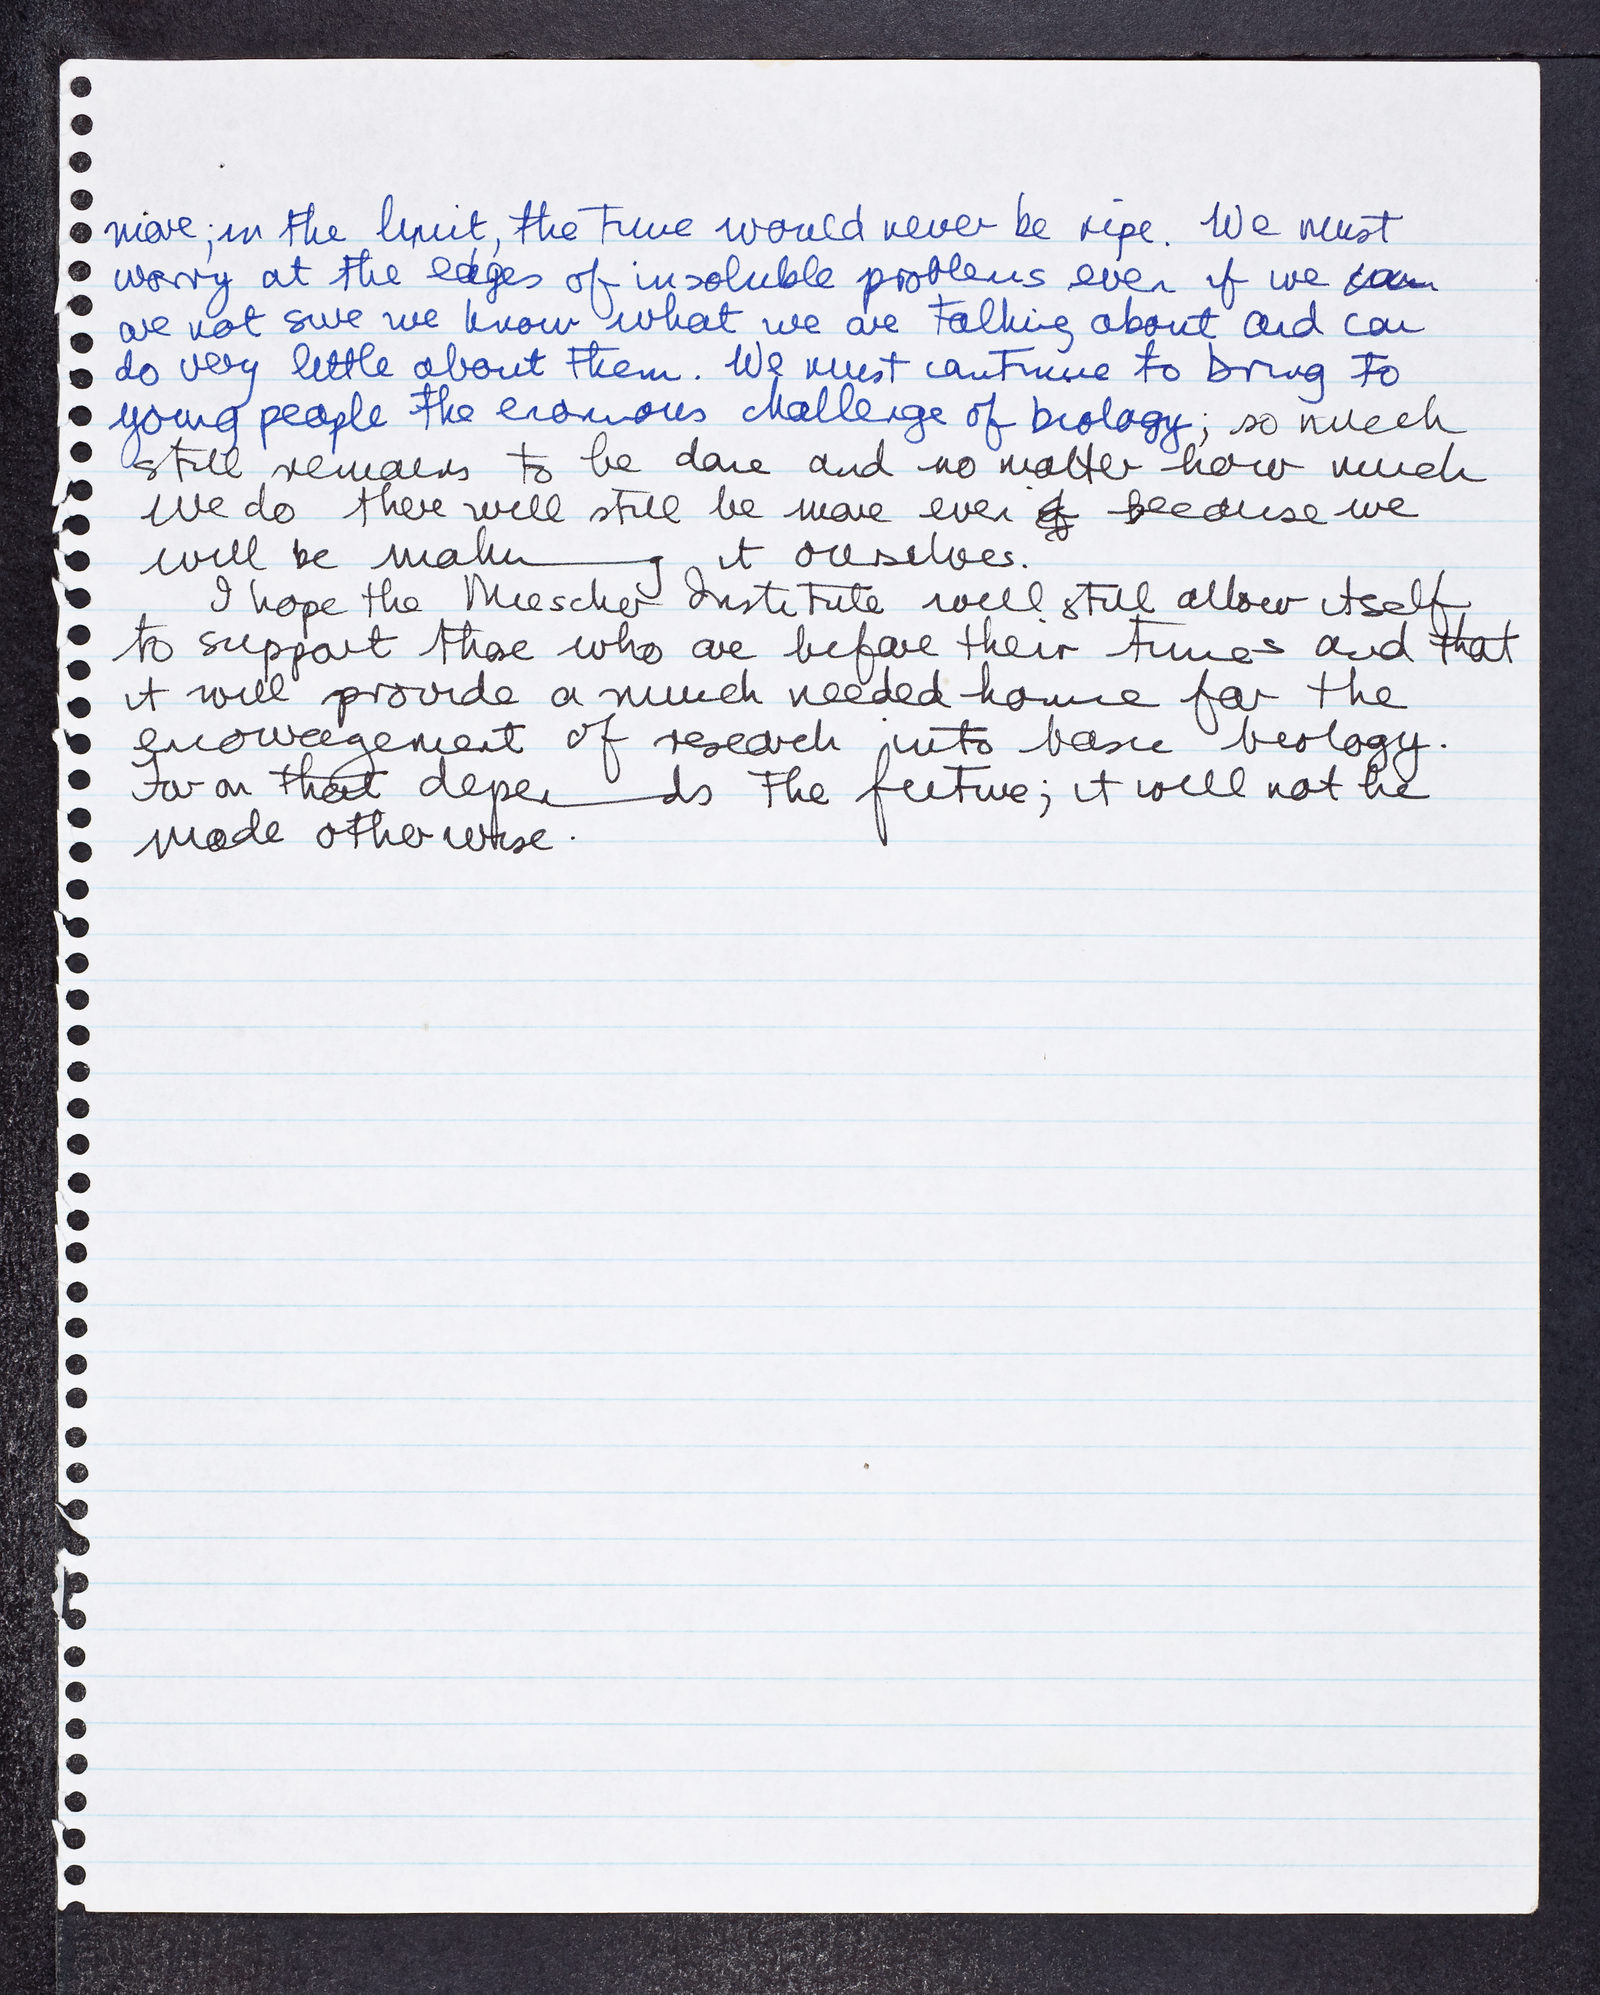 more; in the limit, the time would never be ripe. We must
worry at the edges of insoluble problems even if we
are not sure we know what we are talking about and can
do very little about them. We must continue to bring to
young people the enormous challenge of biology; so much
still remains to be done and no matter how much
we do there will still be more even if because we
will be making it ourselves.
I hope the Miescher Institute will still allow itself
to support those who are before their times and that
it will provide a much needed home for the
encouragement of research into basic biology.
For on that depends the future; it will not be
made otherwise.